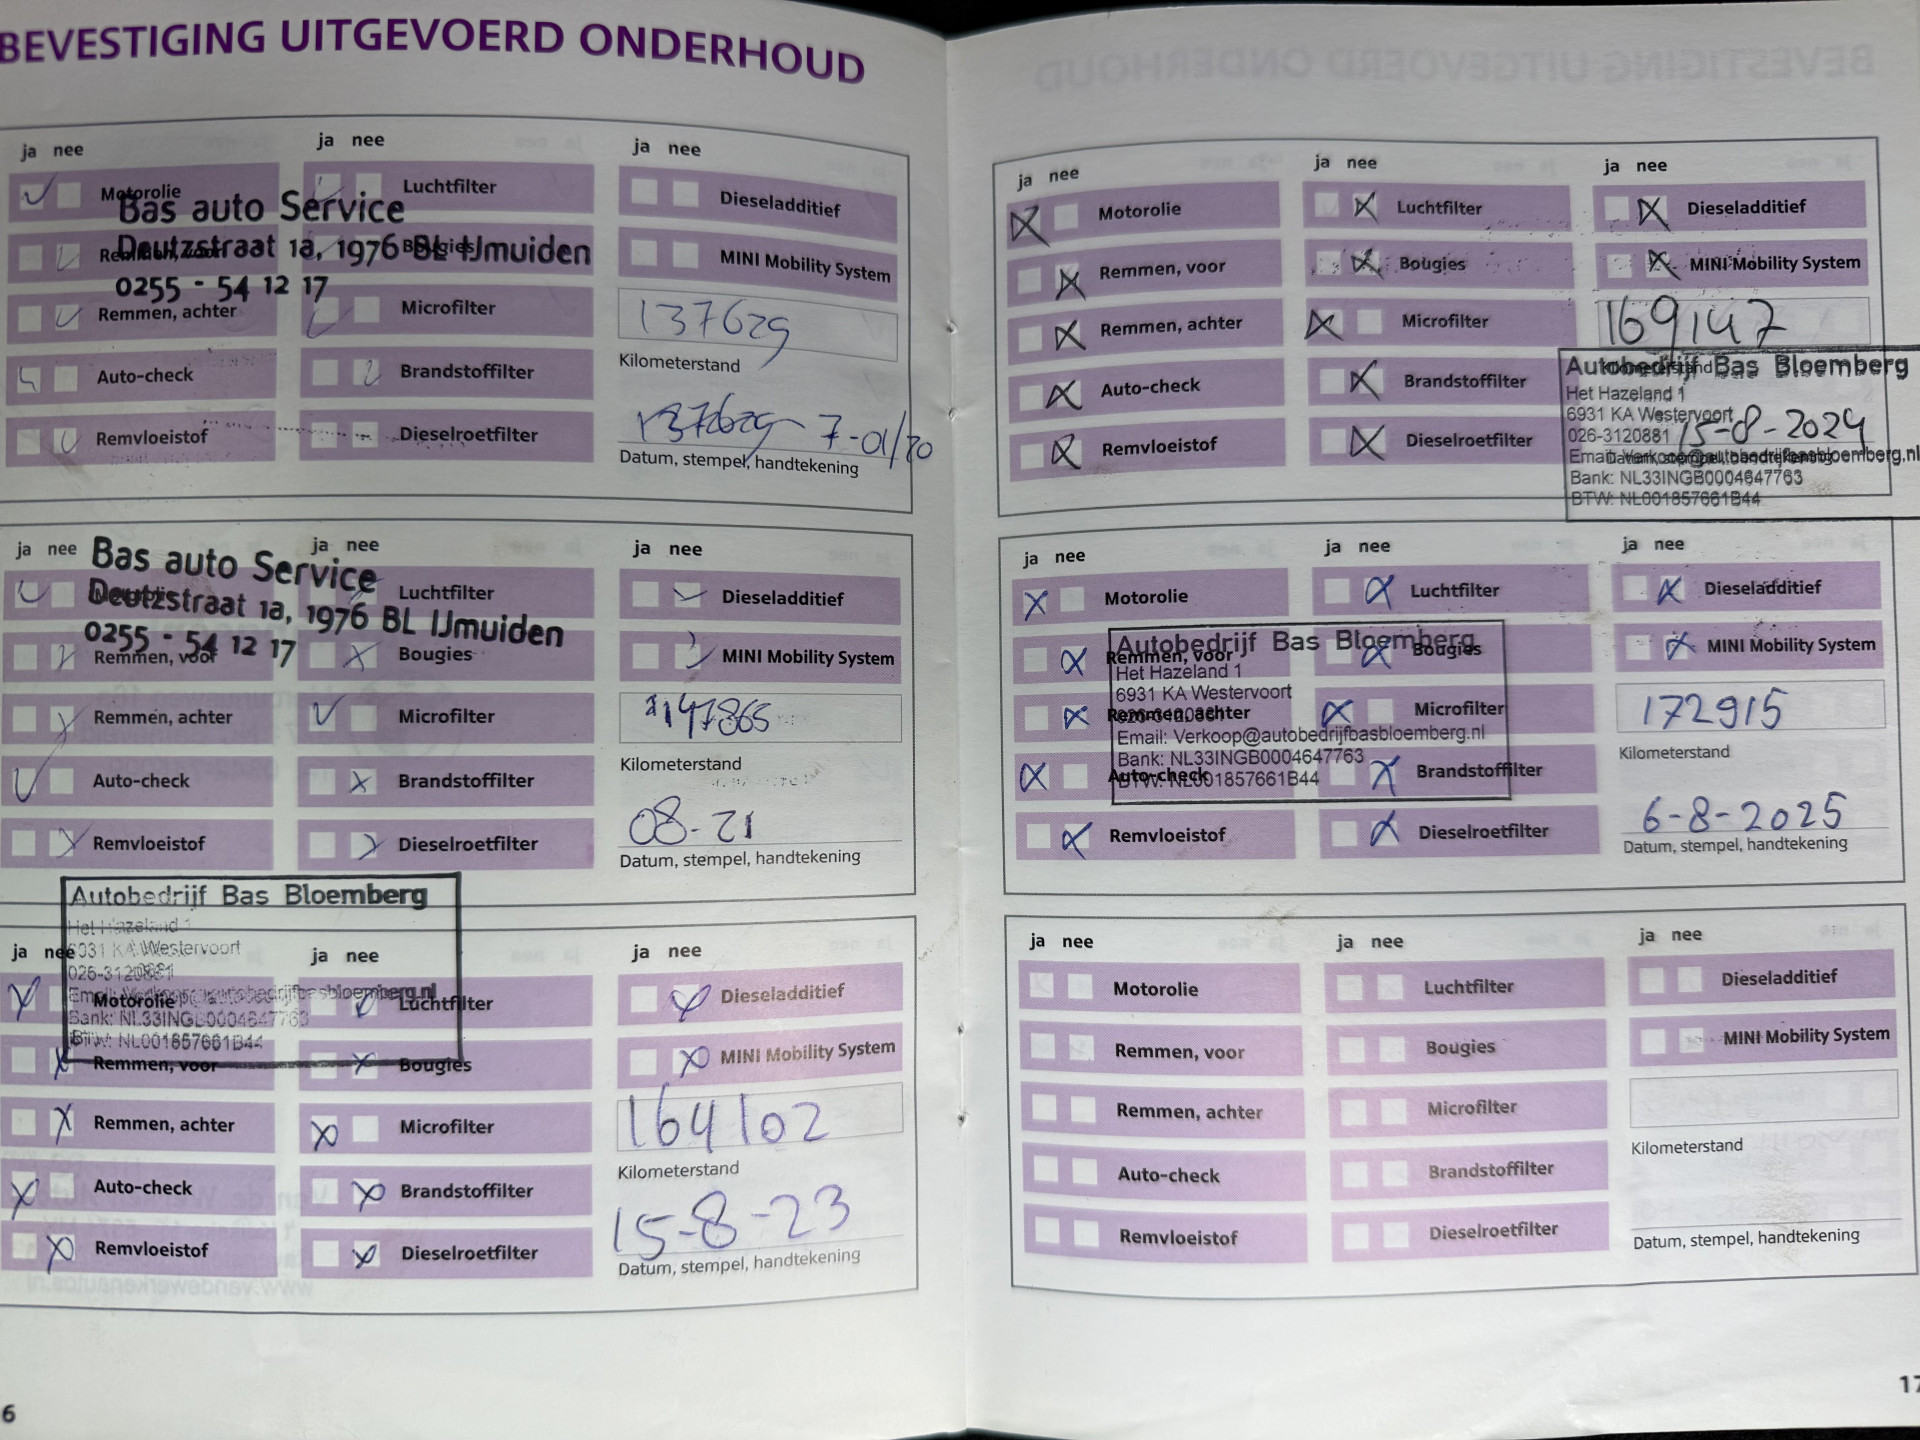 BEVESTIGING UITGEVOERD ONDERHOUD
ja nee
Motorolie
Remmen, voor
Remmen, achter
Auto-check
Remvloeistof
ja nee
Luchtfilter
Bougies
Microfilter
Brandstoffilter
Dieselroetfilter
ja nee
Dieseladditief
MINI Mobility System
137629
Kilometerstand
137629 7-01/20
Datum, stempel, handtekening
Bas auto Service
Deutzstraat 1a, 1976 BL IJmuiden
0255 - 54 12 17
ja nee
Remmen, voor
Remmen, achter
Auto-check
Remvloeistof
ja nee
Luchtfilter
Bougies
Microfilter
Brandstoffilter
Dieselroetfilter
ja nee
Dieseladditief
MINI Mobility System
147865
Kilometerstand
08-21
Datum, stempel, handtekening
Bas auto Service
Deutzstraat 1a, 1976 BL IJmuiden
0255 - 54 12 17
ja nee
Motorolie
Remmen, voor
Remmen, achter
Auto-check
Remvloeistof
ja nee
Luchtfilter
Bougies
Microfilter
Brandstoffilter
Dieselroetfilter
ja nee
Dieseladditief
MINI Mobility System
164102
Kilometerstand
15-8-23
Datum, stempel, handtekening
Autobedrijf Bas Bloemberg
Het Hazeland 1
6931 KA Westervoort
026-3120881
Email: Verkoop@autobedrijfbasbloemberg.nl
Bank: NL33INGB0004647763
BTW: NL001857661B44
6
ja nee
Motorolie
Remmen, voor
Remmen, achter
Auto-check
Remvloeistof
ja nee
Luchtfilter
Bougies
Microfilter
Brandstoffilter
Dieselroetfilter
ja nee
Dieseladditief
MINI Mobility System
169147
Kilometerstand
15-8-2024
Datum, stempel, handtekening
Autobedrijf Bas Bloemberg
Het Hazeland 1
6931 KA Westervoort
026-3120881
Email: Verkoop@autobedrijfbasbloemberg.nl
Bank: NL33INGB0004647763
BTW: NL001857661B44
ja nee
Motorolie
Remmen, voor
Remmen, achter
Auto-check
Remvloeistof
ja nee
Luchtfilter
Bougies
Microfilter
Brandstoffilter
Dieselroetfilter
ja nee
Dieseladditief
MINI Mobility System
172915
Kilometerstand
6-8-2025
Datum, stempel, handtekening
Autobedrijf Bas Bloemberg
Het Hazeland 1
6931 KA Westervoort
026-3120881
Email: Verkoop@autobedrijfbasbloemberg.nl
Bank: NL33INGB0004647763
BTW: NL001857661B44
ja nee
Motorolie
Remmen, voor
Remmen, achter
Auto-check
Remvloeistof
ja nee
Luchtfilter
Bougies
Microfilter
Brandstoffilter
Dieselroetfilter
ja nee
Dieseladditief
MINI Mobility System
Kilometerstand
Datum, stempel, handtekening
17